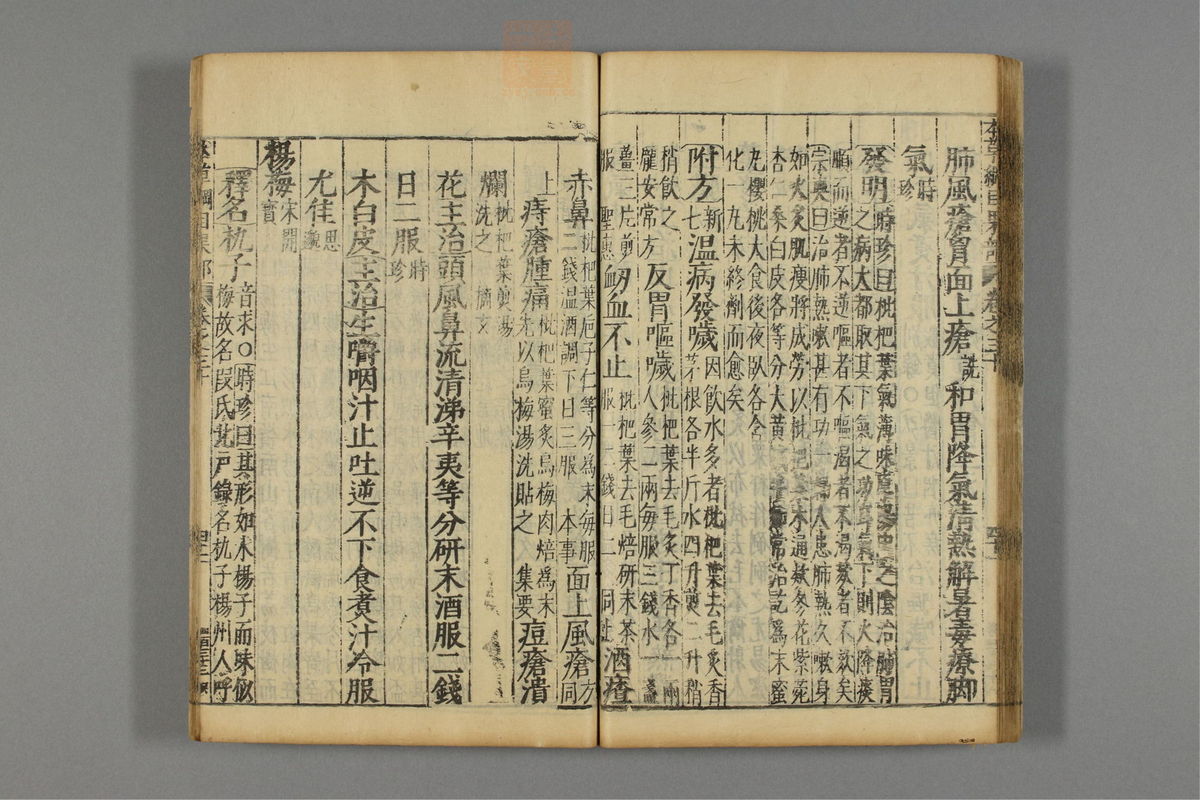 肺風瘡胷面上瘡 詵 和胃降氣淸熱解暑毒療脚
氣 時珍
發明 時珍曰枇杷葉氣薄味厚陽中之陰治肺胃
之病大都取其下氣之功耳氣下則火降痰
順而逆者不逆嘔者不嘔渴者不渴欬者不欬矣
宗奭曰治肺熱嗽甚有功一婦人患肺熱久嗽身
如火炙肌瘦將成勞以枇杷葉木通欬冬花紫菀
杏仁桑白皮各等分大黃減半如常治訖爲末蜜
丸櫻桃大食後夜臥各含
化一丸未終劑而愈矣
附方 新七 溫病發噦 因飲水多者枇杷葉去毛炙香
茅根各半斤水四升煎二升稍
稍飲之 龐安常方 反胃嘔噦 枇杷葉去毛炙丁香各一兩
人參二兩每服三錢水一盞
薑三片煎服 聖惠 衂血不止 枇杷葉去毛焙研末茶
服一二錢日二 同上 酒㾴
赤鼻 枇杷葉巵子仁等分爲末每服
二錢溫酒調下日三服 本事 面上風瘡 方同
上 痔瘡腫痛 枇杷葉蜜炙烏梅肉焙爲末
先以烏梅湯洗貼之 集要 痘瘡潰
爛 枇杷葉煎湯
洗之 摘玄
花主治頭風鼻流清涕辛夷等分研末酒服二錢
日二服 時珍
木白皮主治生嚼咽汁止吐逆不下食煮汁冷服
尤佳 思邈
楊梅 宋開寶
釋名朹子 音求○時珍曰其形如水楊子而味似
梅故名叚氏北戶錄名朹子楊州人呼